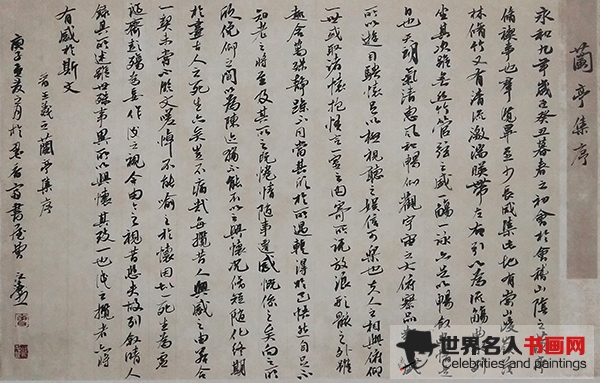 蘭亭集序
永和九年歲在癸丑暮春之初會於會稽山陰之
脩禊事也羣賢畢至少長咸集此地有崇山峻
林脩竹又有清流激湍映帶左右引以為流觴曲
坐其次雖無絲竹管弦之盛一觴一詠亦足以暢敘幽情是
日也天朗氣清惠風和暢仰觀宇宙之大俯察品類之盛
所以遊目騁懷足以極視聽之娛信可樂也夫人之相與俯仰
一世或取諸懷抱悟言一室之內因寄所託放浪形骸之外雖
趣舍萬殊靜躁不同當其欣於所遇輒得於己快然自足不
知老之將至及其所之既倦情隨事遷感慨係之矣向之所
欣俛仰之間以為陳迹猶不能不以之興懷況脩短隨化終期
於盡古人云死生亦大矣豈不痛哉每攬昔人興感之由若合
一契未嘗不臨文嗟悼不能喻之於懷固知一死生為虛
誕齊彭殤為妄作後之視今亦由今之視昔悲夫故列敘時人
錄其所述雖世殊事異所以興懷其致一也後之攬者亦將
有感於斯文
右王羲之蘭亭集序
庚子孟夏月於墨香齋書
世界名人书画网
Celebrities and paintings